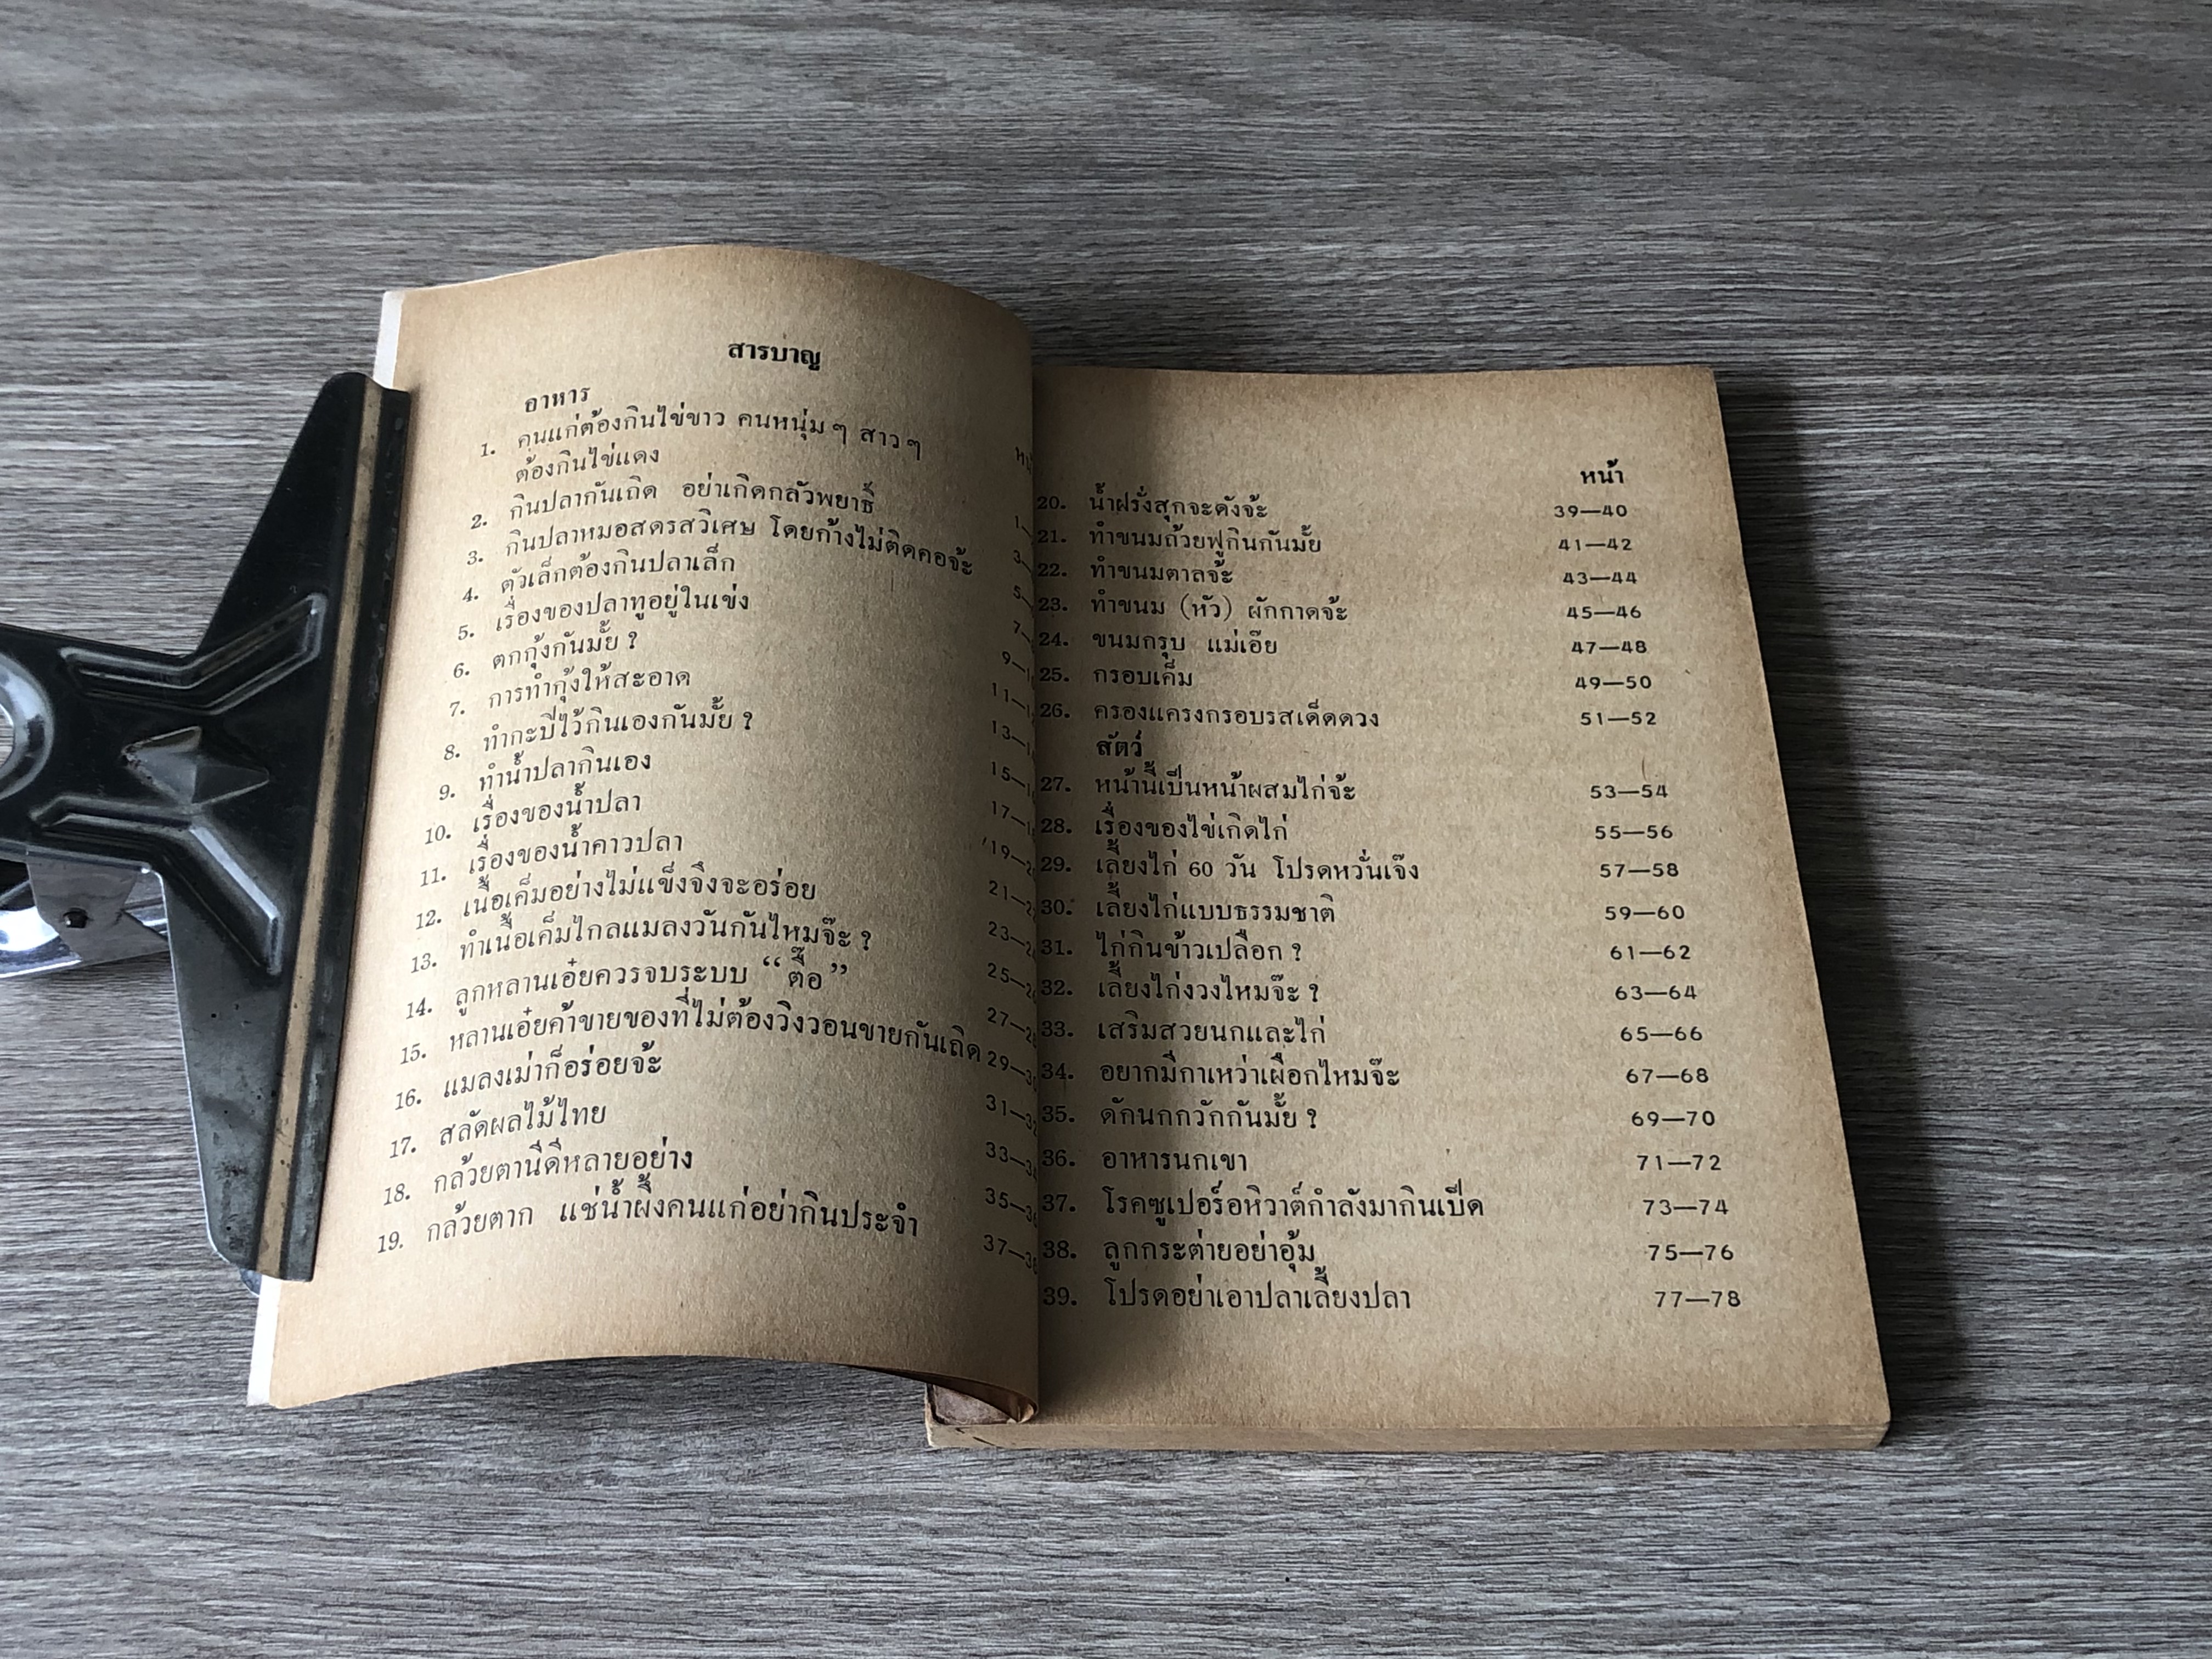 สารบาญ
อาหาร
1. คนแก่ต้องกินไข่ขาว คนหนุ่ม ๆ สาว ๆ
ต้องกินไข่แดง
2. กินปลากันเถิด อย่าเกิดกลัวพยาธิ์
3. กินปลาหมอสดรสวิเศษ โดยก้างไม่ติดคอจ้ะ
4. ตัวเล็กต้องกินปลาเล็ก
5. เรื่องของปลาทูอยู่ในเข่ง
6. ตกกุ้งกันมั้ย ?
7. การทำกุ้งให้สะอาด
8. ทำกะปิไว้กินเองกันมั้ย ?
9. ทำน้ำปลากินเอง
10. เรื่องของน้ำปลา
11. เรื่องของน้ำคาวปลา
12. เนื้อเค็มอย่างไม่แข็งจึงจะอร่อย
13. ทำเนื้อเค็มไกลแมลงวันกันไหมจ๊ะ ?
14. ลูกหลานเอ๋ยควรจบระบบ “ตื๊อ”
15. หลานเอ๋ยค้าขายของที่ไม่ต้องวิงวอนขายกันเถิด
16. แมลงเม่าก็อร่อยจ้ะ
17. สลัดผลไม้ไทย
18. กล้วยตานีดีหลายอย่าง
19. กล้วยตาก แช่น้ำผึ้งคนแก่อย่ากินประจำ
หน้า
20. น้ำฝรั่งสุกจะดังจ้ะ 39—40
21. ทำขนมถ้วยฟูกินกันมั้ย 41—42
22. ทำขนมตาลจ้ะ 43—44
23. ทำขนม (หัว) ผักกาดจ้ะ 45—46
24. ขนมกรุบ แม่เอ๊ย 47—48
25. กรอบเค็ม 49—50
26. ครองแครงกรอบรสเด็ดดวง 51—52
สัตว์
27. หน้านี้เป็นหน้าผสมไก่จ้ะ 53—54
28. เรื่องของไข่เกิดไก่ 55—56
29. เลี้ยงไก่ 60 วัน โปรดหวั่นเจ๊ง 57—58
30. เลี้ยงไก่แบบธรรมชาติ 59—60
31. ไก่กินข้าวเปลือก ? 61—62
32. เลี้ยงไก่งวงไหมจ๊ะ ? 63—64
33. เสริมสวยนกและไก่ 65—66
34. อยากมีกาเหว่าเผือกไหมจ๊ะ 67—68
35. ดักนกกวักกันมั้ย ? 69—70
36. อาหารนกเขา 71—72
37. โรคซูเปอร์อหิวาต์กำลังมากินเป็ด 73—74
38. ลูกกระต่ายอย่าอุ้ม 75—76
39. โปรดอย่าเอาปลาเลี้ยงปลา 77—78